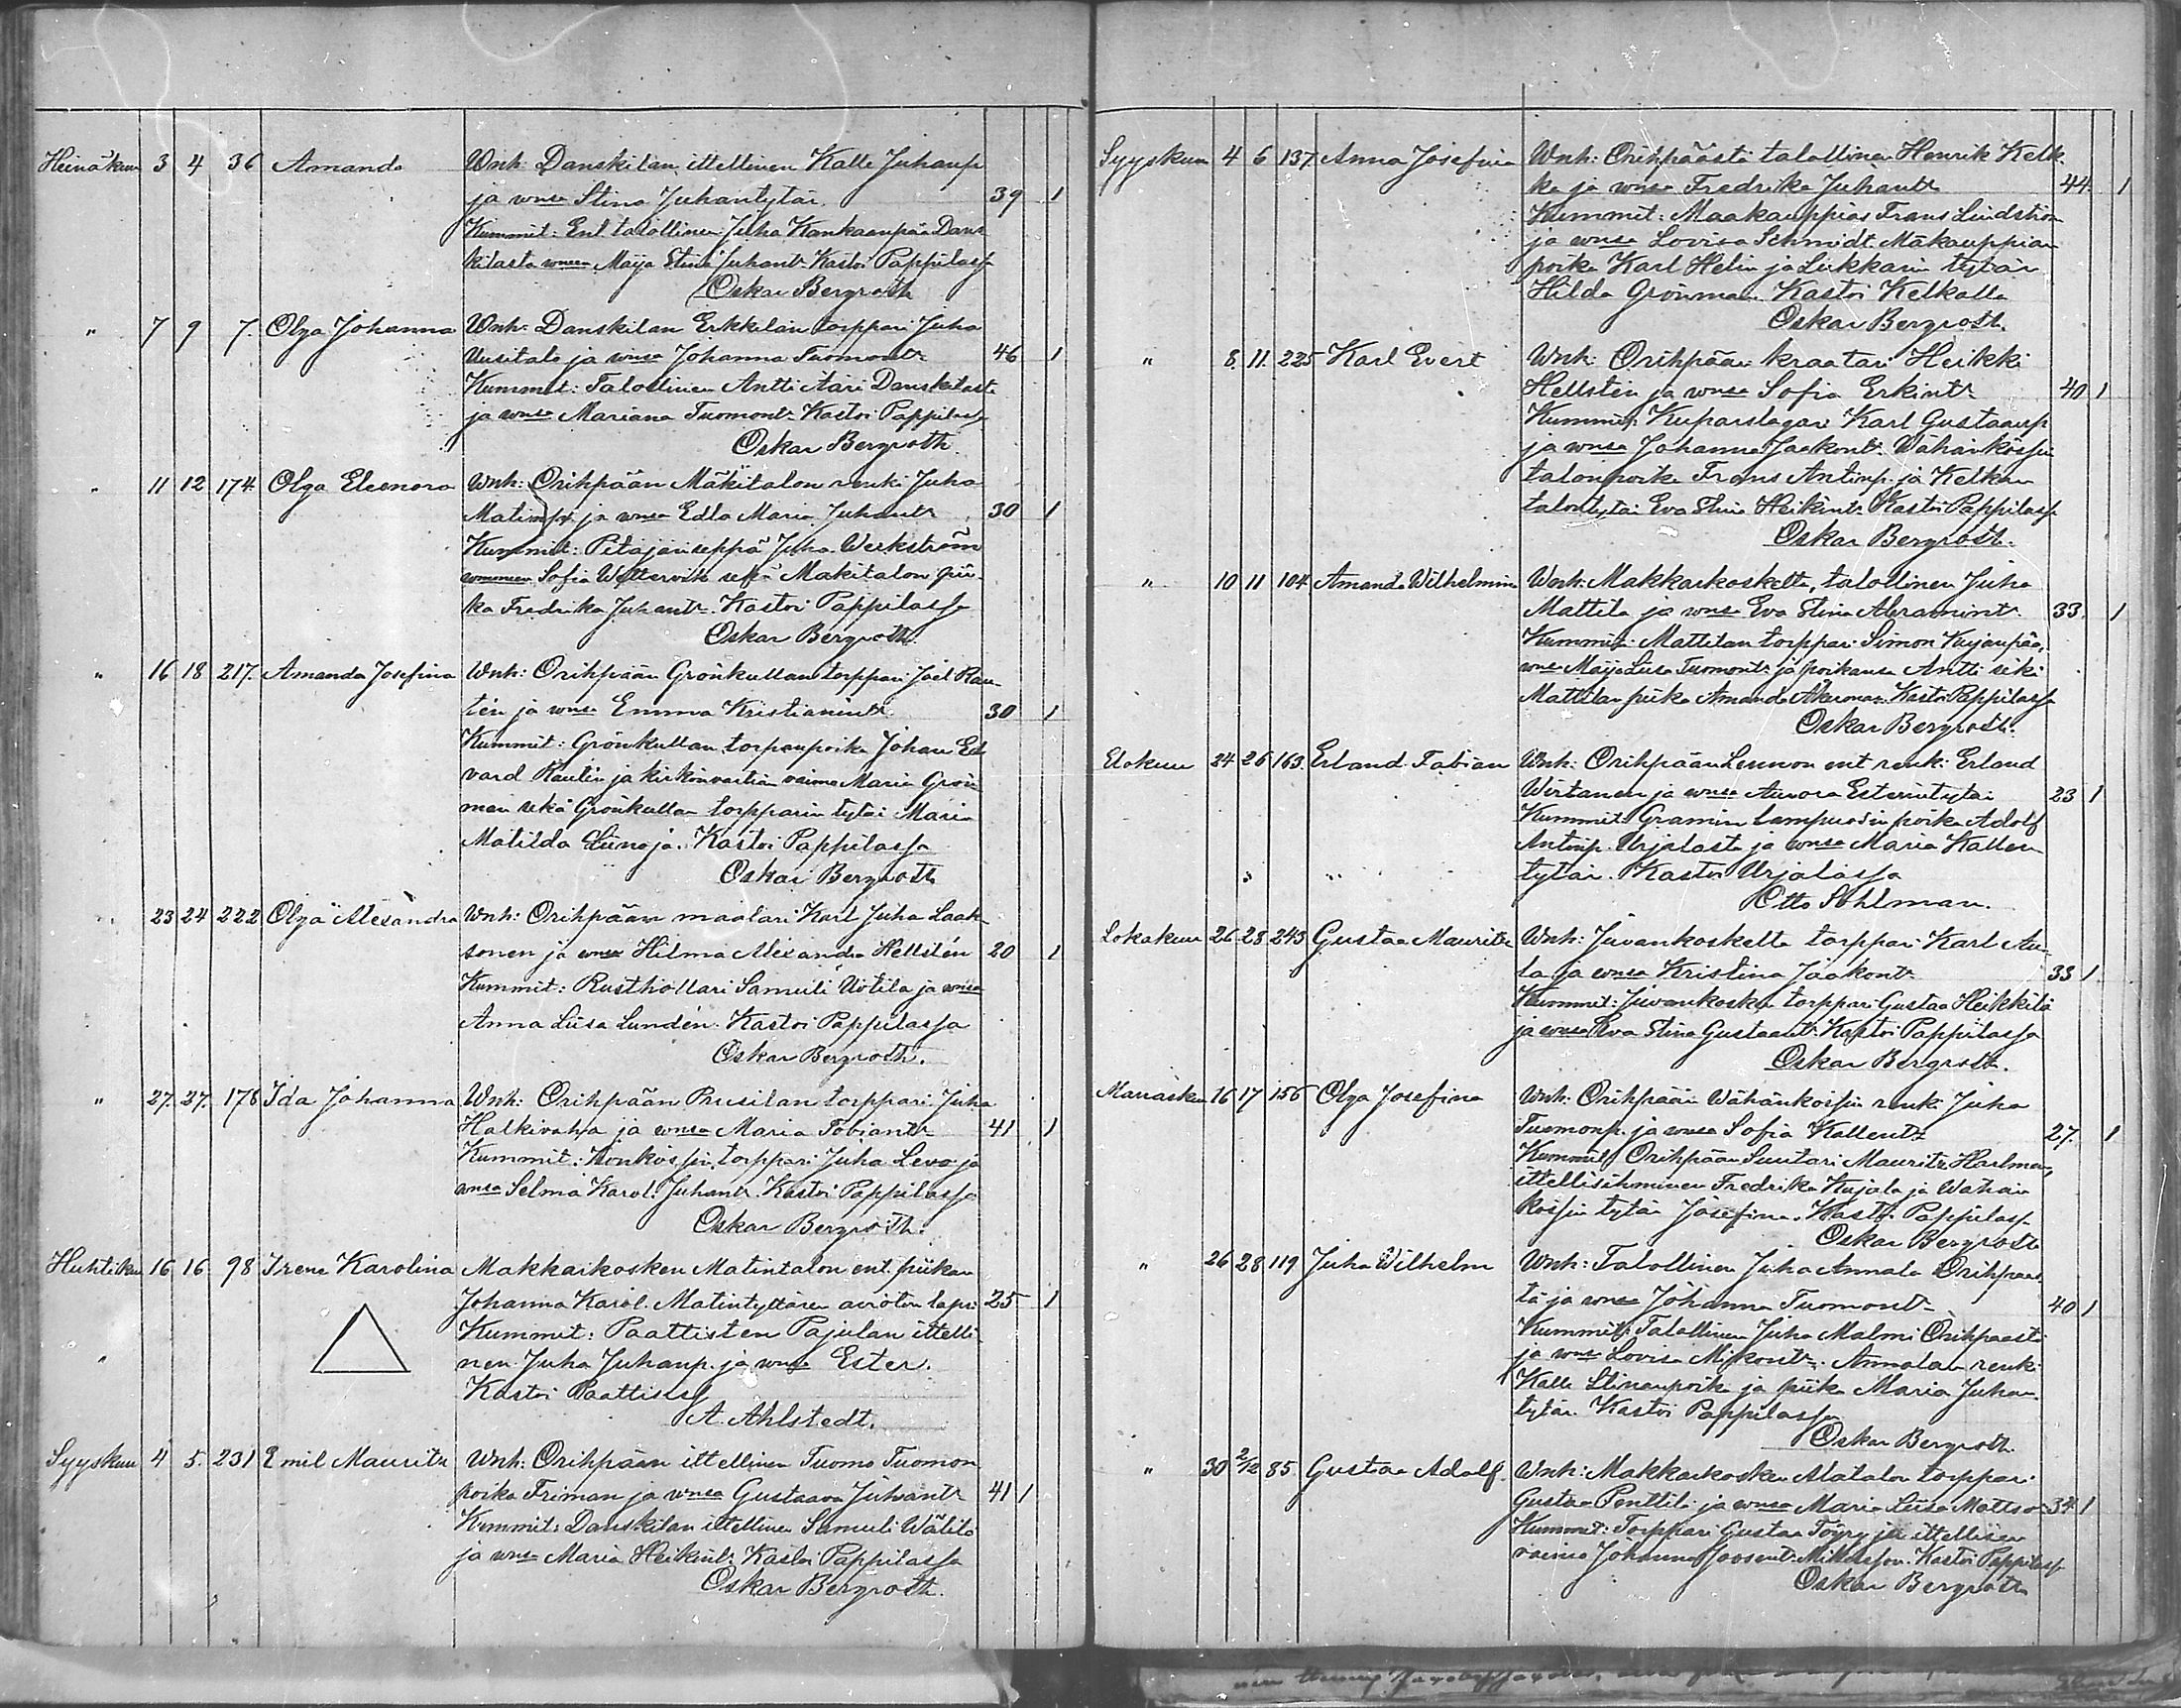 Heinäkuu 3 4 36 Amanda Wnh: Danskilan ittellinen Kalle Juhanp
ja wnsa Stina Juhantytär 39 1
Kummit: Ent talollinen Juha Kankaanpää Dans
kilasta wnsa Maija Stina Juhant. Kastoi Pappilassa
Oskar Bergroth
" 7 9 7. Olga Johanna Wnh: Danskilan Erkkilän torppari Juha
Uusitalo ja wnsa Johanna Tuomontr 46 1
Kummit: Talollinen Antti Ääri Danskilast.
ja wnsa Mariana Tuomont. Kastoi Pappilassa
Oskar Bergroth.
" 11 12 174. Olga Eleonora Wnh: Orihpään Mäkitalon renki Juha
Matinp. ja wnsa Edla Maria Juhantr 30 1
Kummit: Pitäjänseppä Juha Werkström
Sofia sekä Mäkitalon pii-
ka Fredrika Juhantr. Kastoi Pappilassa
Oskar Bergroth.
" 16 18 217. Amanda Josefina Wnh: Orihpään Grönkullan torppari Joel Rau-
tin ja wnsa Emma Kristianintr 30 1
Kummit: Grönkullan torpanpoika Johan Ed
vard Rautin ja kirkonvartian vaimo Maria Grön
man sekä Grönkullan torpparin tytär Maria
Matilda Kastoi Pappilassa
Oskar Bergroth
" 23 24 222 Olga Alexandra Wnh: Orihpään maalari Karl Juha Laak-
sonen ja wnsa Hilma Alexandra Hellstén 20 1
Kummit: Rusthollari Samuli Uotila ja wnsa
Anna Liisa Lundén. Kastoi Pappilassa
Oskar Bergroth.
" 27. 27. 178 Ida Johanna Wnh: Orihpään Prusilan torppari Juha
Halkivaha ja wnsa Maria Tobiantr 41 1
Kummit: torppari Juha Levo ja
wnsa Selma Karol. Juhantr. Kastoi Pappilassa
Oskar Bergroth.
Huhtikuu 16 16 98 Irene Karolina Makkarkosken Matintalon ent. piikan
Johanna Karol. Matintyttären avioton lapsi 25 1
Kummit: Paattisten Pajulan ittelli
nen Juha Juhanp. ja wnsa Ester.
" Kastoi Paattisissa
A. Ahlstedt.
Syyskuu 4 5. 231 Emil Mauritz Wnh: Orihpään ittellinen Tuomo Tuomon
poika Friman ja wnsa Gustaava Juhantr 41 1
Kummit: Danskilan ittellinen Samuli Wälilä
ja wnsa Maria Heikint. Kastoi Pappilassa
Oskar Bergroth.
Syyskuu 4 6 137. Anna Josefina Wnh: Orihpäästä talollinen Henrik Kelk-
ka ja wnsa Fredrika Juhantr 44. 1
Kummit: Maakauppias Frans Lindström
ja wnsa Lovisa Schmidt. Mäkauppian
poika Karl Helin ja Lukkarin tytär
Hilda Grönman. Kastoi Kelkalla
Oskar Bergroth.
" 8. 11. 225 Karl Evert Wnh: Orihpään kraatari Heikki
Hellstén ja wnsa Sofia Erkintr 40 1
Kummit: Kuparslagari Karl Gustaanp
ja wnsa Johanna Jaakont. Wähänkössin
talonpoika Frans Antinp. ja Kelkan
talontytär Eva Stina Heikintr. Kastoi Pappilassa
Oskar Bergroth.
" 10 11 104 Amanda Wilhelmina Wnh: Makkarkoskelta, talollinen Juha
Mattila ja wnsa Eva Stina Abramintr 33. 1
Kummit: Mattilan torppari Simon Kujanpää,
wnsa Maija Liisa Tuomontr. ja poikansa Antti sekä
Mattilan piika Amanda Åkerman. Kastoi Pappilassa
Oskar Bergroth.
Elokuu 24 26 163. Erland Fabian Wnh: Orihpään Lennon ent renki Erland
Wirtanen ja wnsa Aurora Esterintytär 23 1
Kummit: lampuodin poika Adolf
Antinp. Urjalasta ja wnsa Maria Kallen-
" " tytär. Kastoi Urjalassa
Otto Sohlman.
Lokakuu 26 28 243 Gustaa Mauritz Wnh: Juvankoskelta torppari Karl Au-
la ja wnsa Kristina Jaakontr 33 1.
Kummit: Juvankosken torppari Gustaa Heikkilä
ja wnsa Eva Stina Gustaant. Kastoi Pappilassa
Oskar Bergroth.
Marrasku 16 17 156 Olga Josefina Wnh: Orihpään Wähänkössin renki Juha
Tuomonp. ja wnsa Sofia Kallentr. 27. 1
Kummit: Orihpään Suutari Mauritz Harlman,
ittellisihminen Fredrika Kujala ja Wähän
kössin tytär Josefina. Kastoi Pappilassa
Oskar Bergroth
" 26 28 119 Juha Wilhelm Wnh: Talollinen Juha Annala Orihpääs
tä ja wnsa Johanna Tuomontr. 40 1
Kummit: Talollinen Juha Malmi Orihpäästä
ja wnsa Lovisa Mikontr. Annalan renki
Kalle Stinanpoika ja piika Maria Juhan-
tytär. Kastoi Pappilassa
Oskar Bergroth.
" 30 2/12 85. Gustaa Adolf. Wnh: Makkarkosken Alatalon torppari
Gustaa Penttilä ja wnsa Maria Liisa Mattsson 34 1
Kummit: Torppari Gustaa Töyry ja ittellisen
vaimo Johanna Joosent. Mikkelsson. Kastoi Pappilassa
Oskar Bergroth